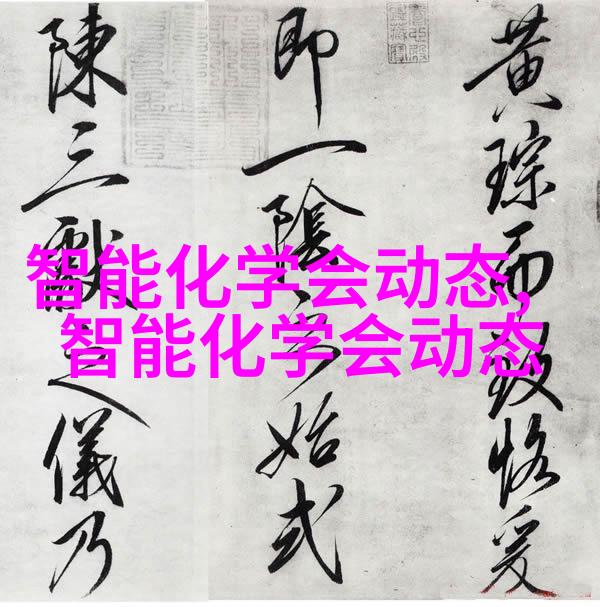 智能化学会动态,
智能化学会动态
黄琮而致恪爰
即一陰始式
陳三獻之儀乃